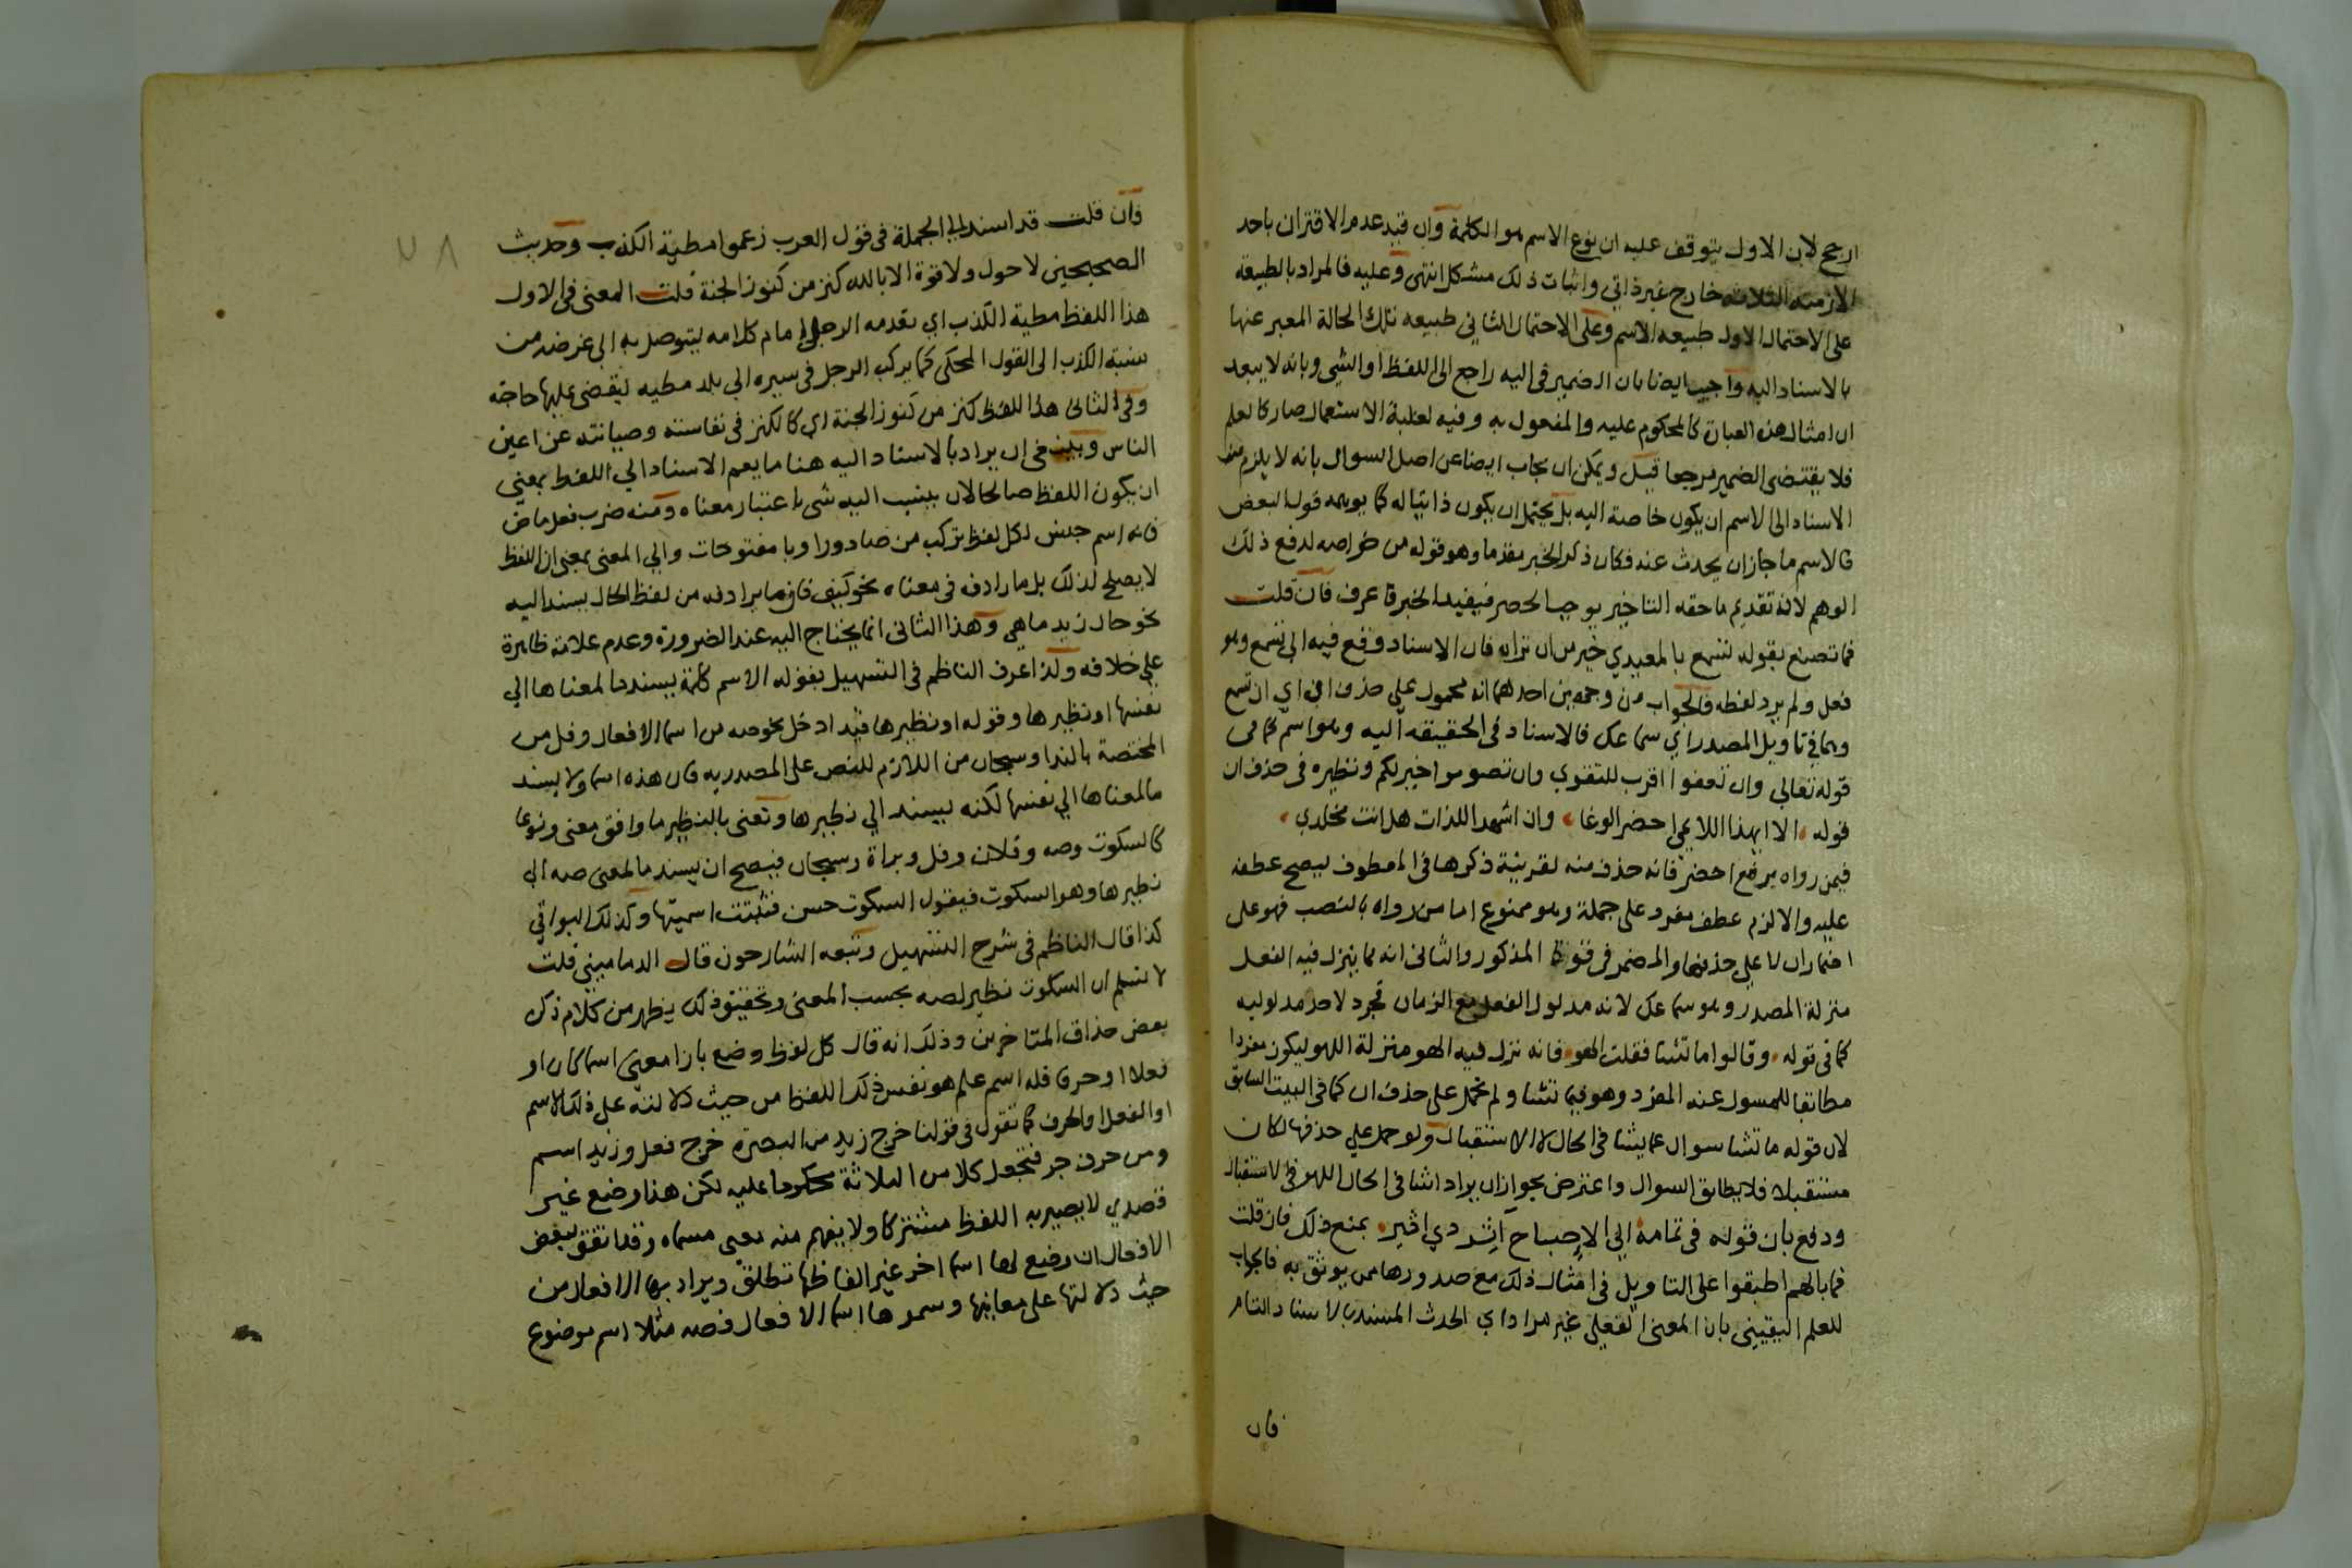 ارجح لان الاول يتوقف عليه ان نوع الاسم هو الكلمة وان قيد عدم الاقتران باحد
الازمنة الثلاثة خارج غير ذاتي واثبات ذلك مشكل انتهى وعليه فالمراد بالطبيعة
على الاحتمال الاول طبيعه الاسم وعلى الاحتمال الثاني طبيعه تلك الحالة المعبر عنها
بالاسناد اليه واجيب ايضا بان الضمير في اليه راجع الى اللفظ او الشي وبانه لا يبعد
ان امثال هذه العبان كالمحكوم عليه والمفعول به وفيه لغلبة الاستعمال صار كالعلم
فلا يقتضى الضمير مرجعا قيل ويمكن ان يجاب ايضا عن اصل السوال بانه لا يلزم من
الاسناد الى الاسم ان يكون خاصة اليه بل يحتمل ان يكون ذاتيا له كما يوهمه قول البعض
فالاسم ما جاز ان يحدث عنه فكان ذكر الخبر مقدما وهو قوله من خواصه لدفع ذلك
الوهم لانه تقديم ما حقه التاخير يوجب الحصر فيفيد الخبر ما عرف فان قلت
فما تصنع بقوله تسمع بالمعيدي خير من ان تراه فان الاسناد وقع فيه الى تسمع وهو
فعل ولم يرد لفظه فالجواب من وجهين احدهما انه محمول على حذف ان اي ان تسمع
وهما في تاويل المصدر اي سماعك فالاسناد في الحقيقه اليه وهو اسم كما في
قوله تعالى وان تعفوا اقرب للتقوى وان تصوموا خير لكم ونظيره في حذف ان
قوله الا ايهذا اللايمي احضر الوغا وان اشهد اللذات هل انت مخلدي
فيمن رواه برفع احضر فانه حذف منه لقرينة ذكرها في المعطوف ليصح عطفه
عليه والا لزم عطف مفرد على جملة وهو ممنوع اما من رواه بالنصب فهو على
اضمار ان لا على حذفها والمضمر في قوة المذكور والثانى انه مما ينزل فيه الفعل
منزلة المصدر وهو سماعك لانه مدلول الفعل مع الزمان فجرد لاحد مدلوليه
كما في قوله وقالوا ما تشا فقلت الهو فانه نزل فيه الهو منزلة اللهو ليكون مفردا
مطابقا للمسول عنه المفرد وهو فيما تشا ولم يحمل على حذف ان كما في البيت السابق
لان قوله ما تشا سوال عما يشا في الحال لا الاستقبال ولو حمل على حذفها لكان
مستقبلا فلا يطابق السوال واعترض بجواز ان يراد اشا في الحال اللهو في الاستقبال
ودفع بان قوله في تمامه الى الاصباح آثر ذي اثير يمنع ذلك فان قلت
فما بالهم اطبقوا على التاويل في امثال ذلك مع صدورها ممن يوثق به فالجواب
للعلم اليقيني بان المعنى الفعلي غير مراد اي الحدث المسند بالاسناد التام
فان
وان قلت قد اسند الى الجملة في قول العرب زعموا مطية الكذب وحديث
الصحيحين لا حول ولا قوة الا بالله كنز من كنوز الجنة قلت المعنى في الاول
هذا اللفظ مطية الكذب اي يقدمه الرجل امام كلامه ليتوصل به الى غرضه من
نسبة الكذب الى القول المحكى كما يركب الرجل في سيره الى بلد مطيه ليقضى عليها حاجته
وفي الثانى هذا اللفظ كنز من كنوز الجنة اي كالكنز في نفاسته وصيانته عن اعين
الناس وينبغي ان يراد بالاسناد اليه هنا ما يعم الاسناد الى اللفظ بمعنى
ان يكون اللفظ صالحا لان ينسب اليه شى باعتبار معناه ومنه ضرب فعل ماض
فانه اسم جنس لكل لفظ تركب من ضاد ورا وبا مفتوحات والى المعنى بمعنى ان اللفظ
لا يصلح لذلك بل مارادف في معناه نحو كيف فان ما يرادفه من لفظ الحال يسند اليه
نحو حال زيد ما هي وهذا الثانى انما يحتاج اليه عند الضرورة وعدم علامة ظاهرة
على خلافه ولذا عرف الناظم في التسهيل بقوله الاسم كلمة يسند ما لمعناها الى
نفسها او نظيرها وقوله او نظيرها قيد ادخل نحو صه من اسما الافعال وفل من
المختصة بالندا وسبحان من اللازم للنصب على المصدريه فان هذه اسما ولا يسند
ما لمعناها الى نفسها لكنه يسند الى نظيرها وتعنى بالنظير ما وافق معنى ونوعا
كالسكوت وصه وفلان وفل وبراة وسبحان فيصح ان يسند ما لمعنى صه الى
نظيرها وهو السكوت فيقول السكوت حسن فثبتت اسميتها وكذلك البواقي
كذا قال الناظم في شرح التسهيل وتبعه الشارحون قال الدماميني قلت
لا نسلم ان السكوت نظير لصه بحسب المعنى وتحقيق ذلك يظهر من كلام ذكره
بعض حذاق المتاخرين وذلك انه قال كل لفظ وضع بازا معنى اسما كان او
فعلا او حرفا فله اسم علم هو نفس ذلك اللفظ من حيث دلالته على ذلك الاسم
او الفعل او الحرف كما تقول في قولنا خرج زيد من البصرة خرج فعل وزيد اسم
ومن حرف جر فتجعل كلا من الثلاثة محكوما عليه لكن هذا وضع غير
قصدي لا يصير به اللفظ مشتركا ولا يفهم منه معنى مسماه وقد اتفق لبعض
الافعال ان وضع لها اسما اخر غير الفاظها تطلق ويراد بها الافعال من
حيث دلالتها على معانيها وسموها اسما الافعال فصه مثلا اسم موضوع